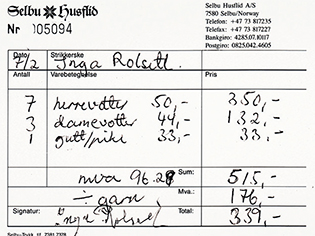 Selbu Husflid
Selbu Husflid A/S
7580 Selbu/Norway
Telefon: +47 73 817235
Telefax: +47 73 817227
Bankgiro: 4285.07.10117
Postgiro: 0825.042.4605
Nr 005094
Dato/ Strikkerske
7/2 Inga Rolseth
Antall Varebetegnelse Pris
7 herrevotter 50,- 350,-
3 damevotter 44,- 132,-
1 gutt/pike 33,- 33,-
mva 96.29 Sum: 515,-
÷ garn Mva.: 176,-
Signatur: Inga Rolseth Total: 339,-